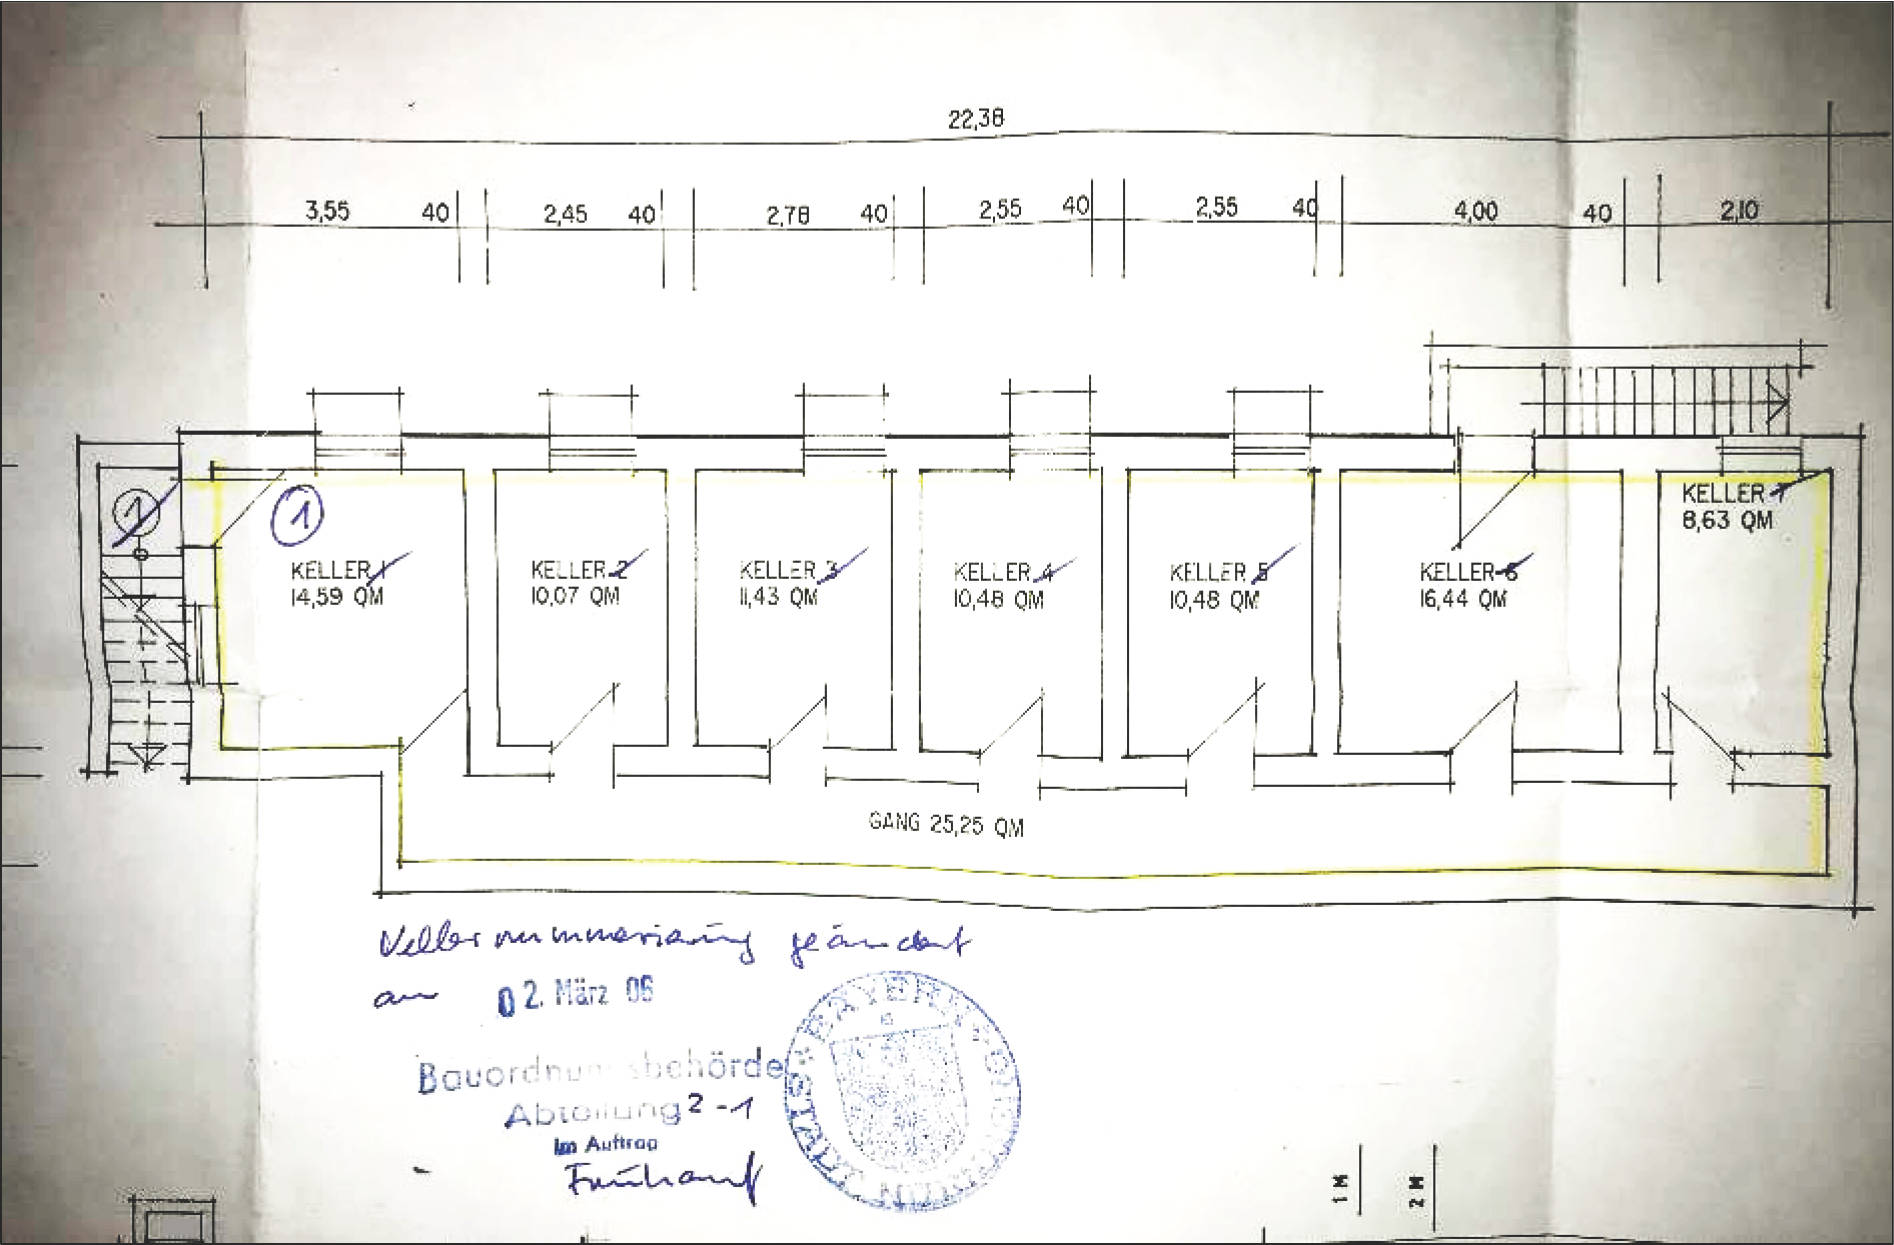 22,38
3,55 40 2,45 40 2,78 40 2,55 40 2,55 40 4,00 40 2,10
1
1
KELLER 1
14,59 QM
KELLER 2
10,07 QM
KELLER 3
11,43 QM
KELLER 4
10,48 QM
KELLER 5
10,48 QM
KELLER 6
16,44 QM
KELLER 7
8,63 QM
GANG 25,25 QM
Kellernummerierung geändert
am 02. März 06
Bauordnungsbehörde
Abteilung 2-1
Im Auftrag
BAYERN
STADT
1 M
2 M